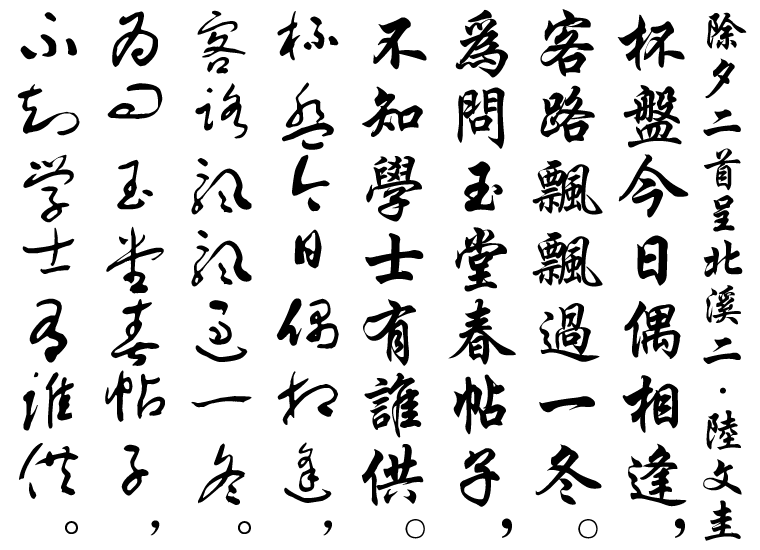 除夕二首呈北溪二·陸文圭
杯盤今日偶相逢,
客路飄飄過一冬。
為問玉堂春帖子,
不知學士有誰供。
杯盤今日偶相逢,
客路飄飄過一冬。
為問玉堂春帖子,
不知學士有誰供。